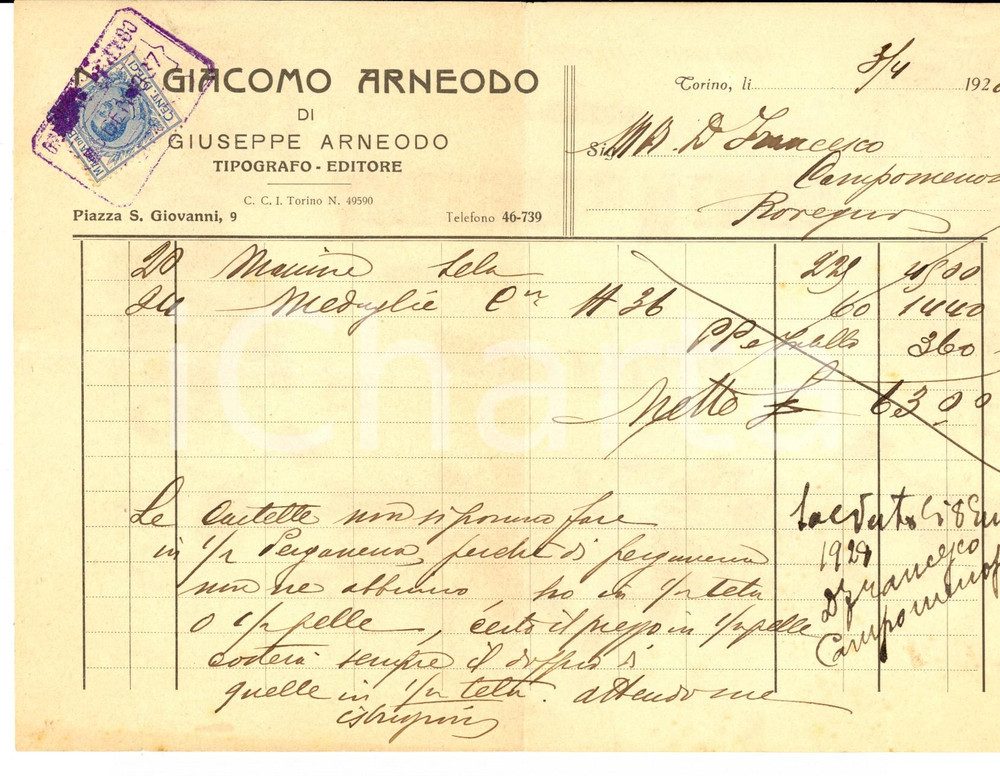 GIACOMO ARNEODO
DI
GIUSEPPE ARNEODO
TIPOGRAFO - EDITORE
C. C. I. Torino N. 49590
Piazza S. Giovanni, 9 Telefono 46-739
Torino, li 3/4 192
Sig. D Francesco
Campomenosi
Rovegno
20 Massime tela 225 4500
24 Medaglie H 36 60 1440
PP e 360
Netto £ 6300
Le Cartelle non si possono fare
in 1/2 Pergamena, perche di pergamena
non ne abbiamo, ho in 1/2 tela
o 1/2 pelle, certo il prezzo in 1/2 pelle
costerà sempre il doppio di
quelle in 1/2 tela. attendo
istruzioni
Saldato li 8
1929
D Francesco
Campomenosi
CENT. DIECI
iCharta